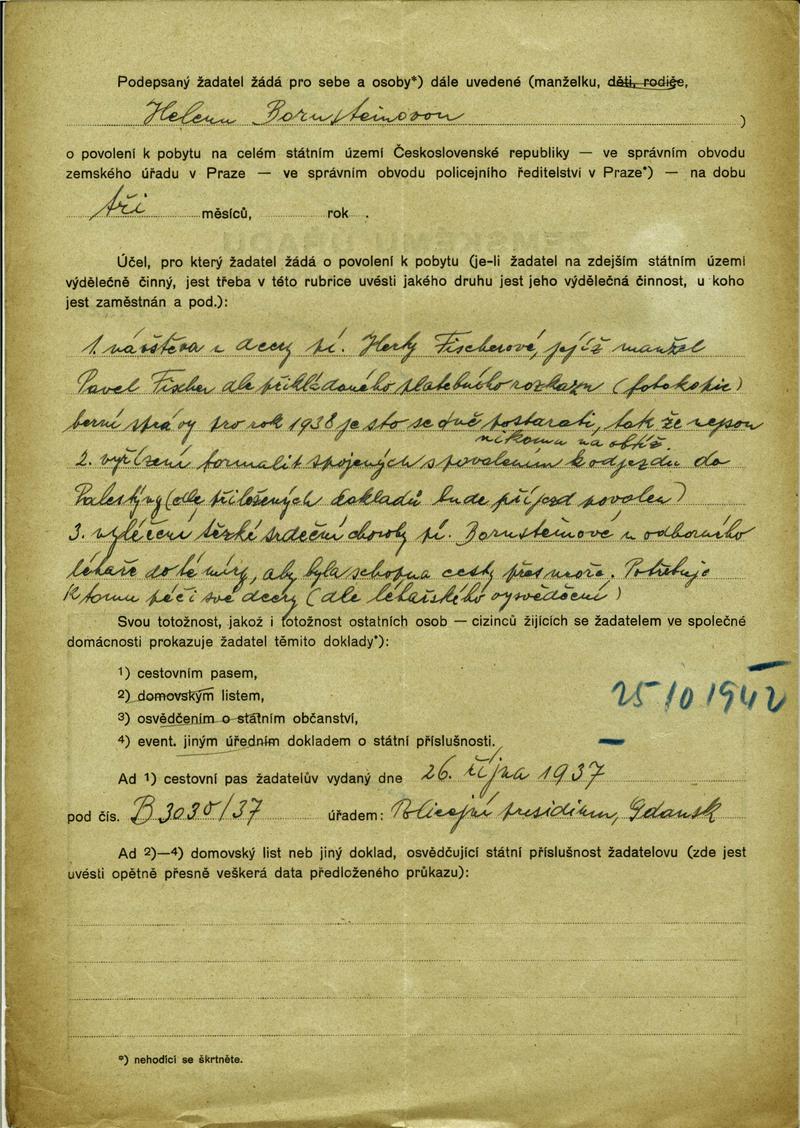 Podepsaný žadatel žádá pro sebe a osoby*) dále uvedené (manželku, děti, rodiče,
Helenu Bornsteinovou )
o povolení k pobytu na celém státním území Československé republiky — ve správním obvodu
zemského úřadu v Praze — ve správním obvodu policejního ředitelství v Praze*) — na dobu
tři měsíců, rok .
Účel, pro který žadatel žádá o povolení k pobytu (je-li žadatel na zdejším státním území
výdělečně činný, jest třeba v této rubrice uvésti jakého druhu jest jeho výdělečná činnost, u koho
jest zaměstnán a pod.):
1. návštěva u dcery pí. Herty Fischerové, jejíž manžel
Pavel Fischer dle přikládaného platebního rozkazu (fotokopie)
berní správy pro rok 1938 je sto se o ně postarati, tak že nejsou
nikomu na obtíž
2. vyřízení formalit spojených s povolením k odjezdu do
Palestýny (dle přiložených dokladů bude příjezd povolen)
3. vyléčení těžké srdeční choroby pí. Bornsteinové u odborného
lékaře do té míry, aby byla schopna cesty přes moře. Potřebuje
k tomu péči své dcery (dle lékařského vysvědčení)
Svou totožnost, jakož i totožnost ostatních osob — cizinců žijících se žadatelem ve společné
domácnosti prokazuje žadatel těmito doklady*):
1) cestovním pasem,
2) domovským listem,
3) osvědčením o státním občanství,
4) event. jiným úředním dokladem o státní příslušnosti.
25/10 1942
Ad 1) cestovní pas žadatelův vydaný dne 26. října 1937
pod čís. B 3030/37 úřadem: Policejní presidium, Gdansk
Ad 2)—4) domovský list neb jiný doklad, osvědčující státní příslušnost žadatelovu (zde jest
uvésti opětně přesně veškerá data předloženého průkazu):
*) nehodící se škrtněte.